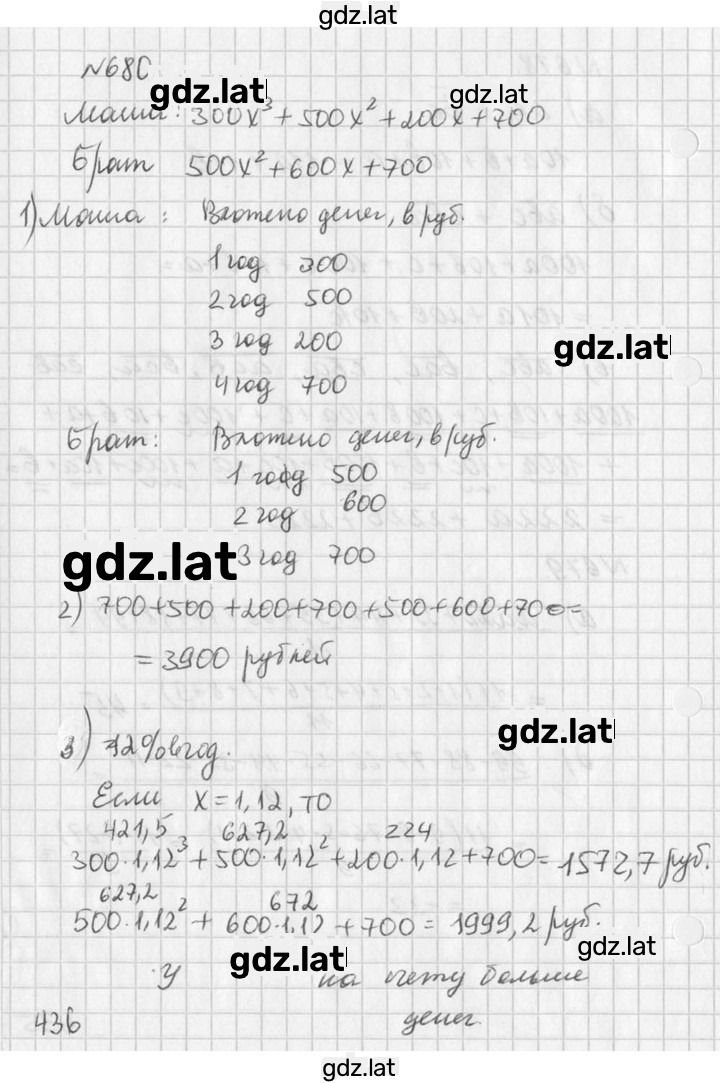 gdz.lat
№680
gdz.lat gdz.lat
Маша: 300x³ + 500x² + 200x + 700
Брат 500x² + 600x + 700
1) Маша: Вложено денег, в руб.
1 год 300
2 год 500
3 год 200
gdz.lat
4 год 700
Брат: Вложено денег, в руб.
1 год 500
2 год 600
gdz.lat
3 год 700
2) 700+500+200+700+500+600+700=
= 3900 рублей
gdz.lat
3) 12% в год.
Если x = 1,12, то
421,5 627,2 224
300·1,12³ + 500·1,12² + 200·1,12 + 700 = 1572,7 руб.
627,2 672
500·1,12² + 600·1,12 + 700 = 1999,2 руб.
gdz.lat gdz.lat
У на счету больше
денег.
436
gdz.lat